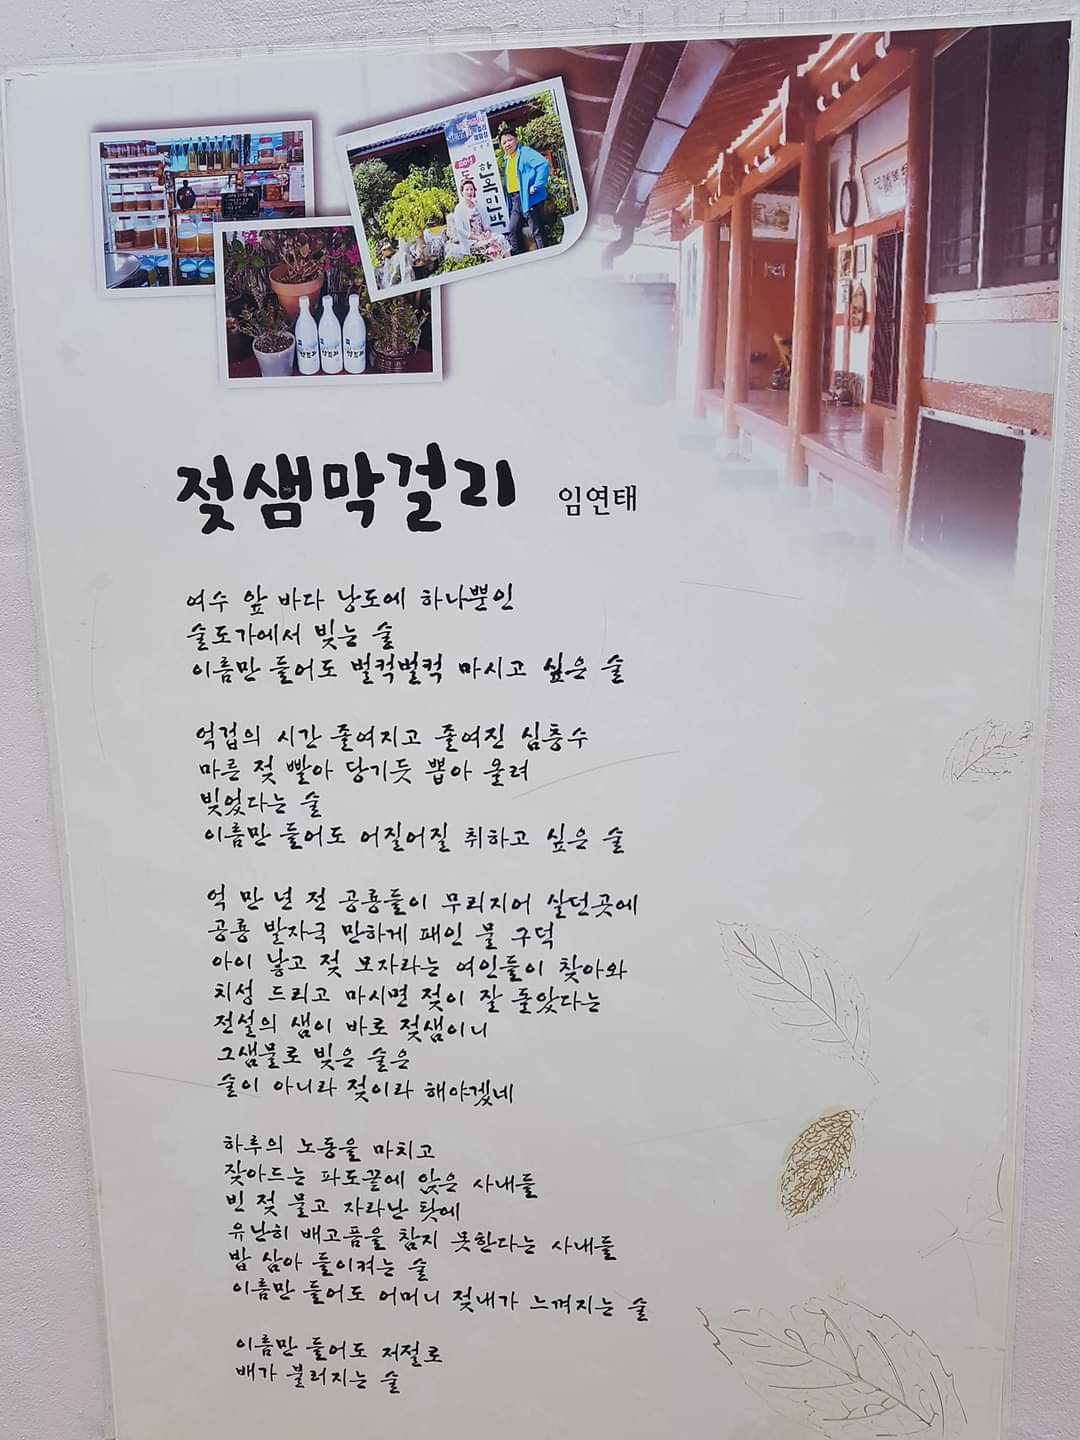 한옥민박
젖샘막걸리 임연태
여수 앞 바다 낭도에 하나뿐인
술도가에서 빚는 술
이름만 들어도 벌컥벌컥 마시고 싶은 술
억겁의 시간 졸여지고 졸여진 심층수
마른 젖 빨아 당기듯 뽑아 올려
빚었다는 술
이름만 들어도 어질어질 취하고 싶은 술
억 만 년 전 공룡들이 무리지어 살던곳에
공룡 발자국 만하게 패인 물 구덕
아이 낳고 젖 모자라는 여인들이 찾아와
치성 드리고 마시면 젖이 잘 돌았다는
전설의 샘이 바로 젖샘이니
그샘물로 빚은 술은
술이 아니라 젖이라 해야겠네
하루의 노동을 마치고
잦아드는 파도끝에 앉은 사내들
빈 젖 물고 자라난 탓에
유난히 배고픔을 참지 못한다는 사내들
밥 삼아 들이켜는 술
이름만 들어도 어머니 젖내가 느껴지는 술
이름만 들어도 저절로
배가 불러지는 술